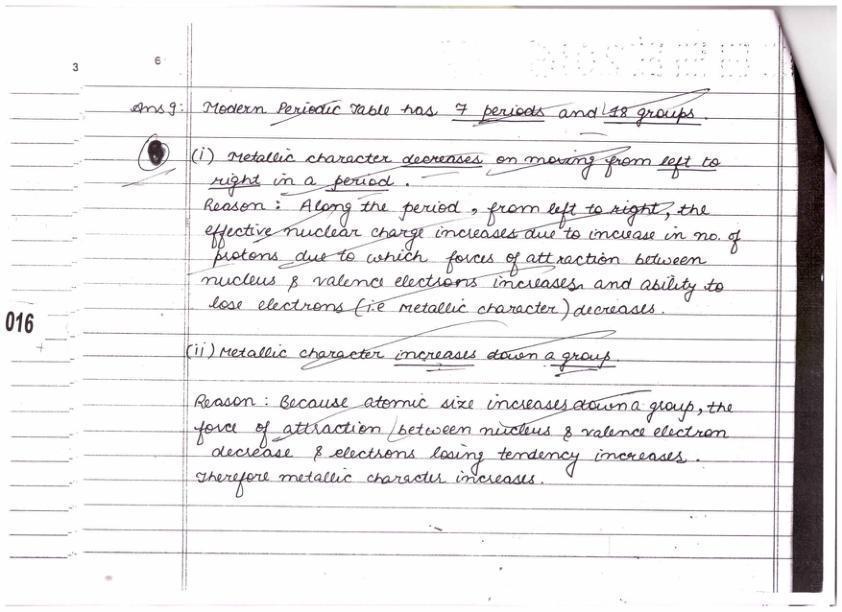 3
6
Ans 9: Modern Periodic Table has 7 periods and 18 groups.
(i) Metallic character decreases on moving from left to
right in a period.
Reason: Along the period, from left to right, the
effective nuclear charge increases due to increase in no. of
protons due to which forces of attraction between
nucleus & valence electrons increases and ability to
lose electrons (i.e metallic character) decreases.
016
(ii) Metallic character increases down a group.
Reason: Because atomic size increases down a group, the
force of attraction between nucleus & valence electron
decrease & electrons losing tendency increases.
Therefore metallic character increases.